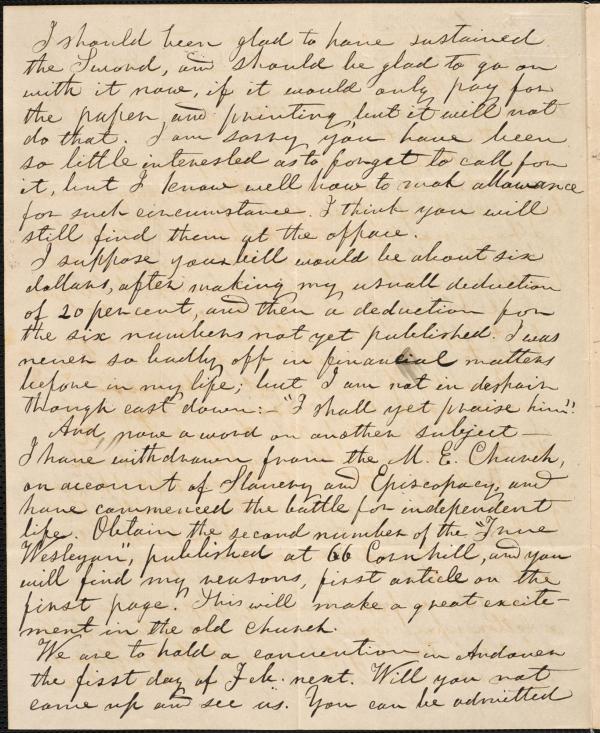 I should been glad to have sustained
the Sword, and should be glad to go on
with it now, if it would only pay for
the paper and printing, but it will not
do that. I am sorry you have been
so little interested as to forget to call for
it, but I know well how to mak allowance
for such circumstance. I think you will
still find them at the office.
I suppose your bill would be about six
dollars, after making my usuall deduction
of 20 per cent, and then a deduction for
the six numbers not yet published. I was
never so badly off in financial matters
before in my life; but I am not in despair
though cast down:- "I shall yet praise him"!
And, now a word on another subject-
I have withdrawn from the M. E. Church,
on account of Slavery and Episcopacy, and
have commenced the battle for independent
life. Obtain the second number of the "True
Wesleyan", published at 66 Cornhill, and you
will find my reasons, first article on the
first page. This will make a great excite-
ment in the old church.
We are to hold a convention in Andover
the first day of Feb. next. Will you not
come up and see us. You can be admitted